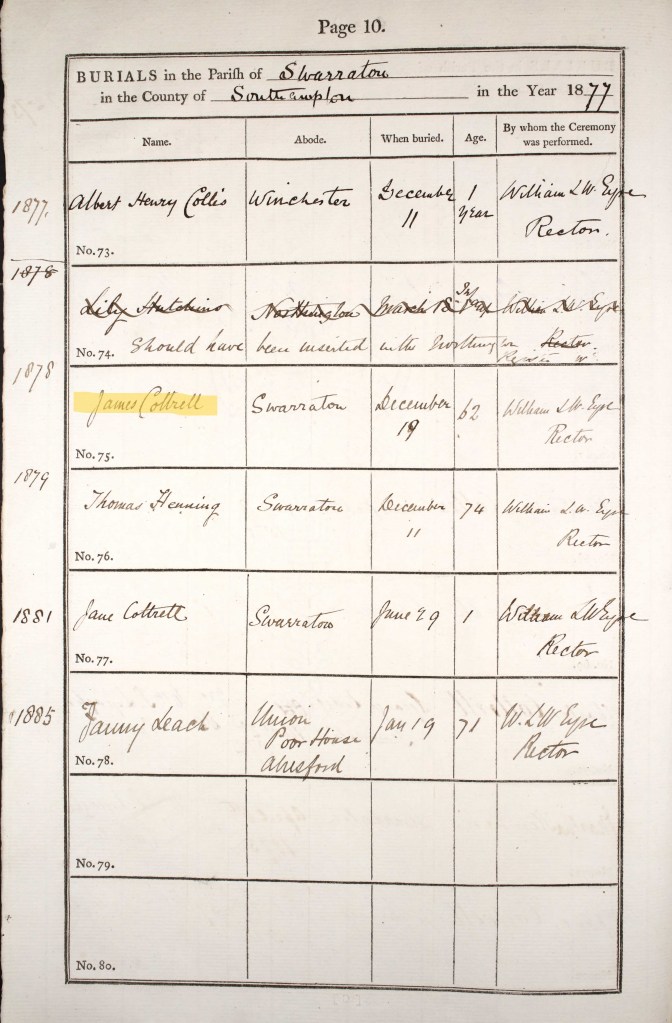 Page 10.
BURIALS in the Parish of Swarraton
in the County of Southampton in the Year 1877
Name. Abode. When buried. Age. By whom the Ceremony was performed.
1877. Albert Henry Collis Winchester December 11 1 Year William L.W. Eyre Rector.
No. 73.
1878
Lily Hutchins Northington March 18 William L.W. Eyre Rector
No. 74. Should have been inserted in the Northington
1878
James Cottrell Swarraton December 19 62 William L.W. Eyre Rector
No. 75.
1879
Thomas Henning Swarraton December 11 74 William L.W. Eyre Rector
No. 76.
1881 Jane Cottrell Swarraton June 29 1 William L W Eyre Rector
No. 77.
1885 Fanny Leach Union Poor House Alresford Jan 19 71 W. L W Eyre Rector
No. 78.
No. 79.
No. 80.